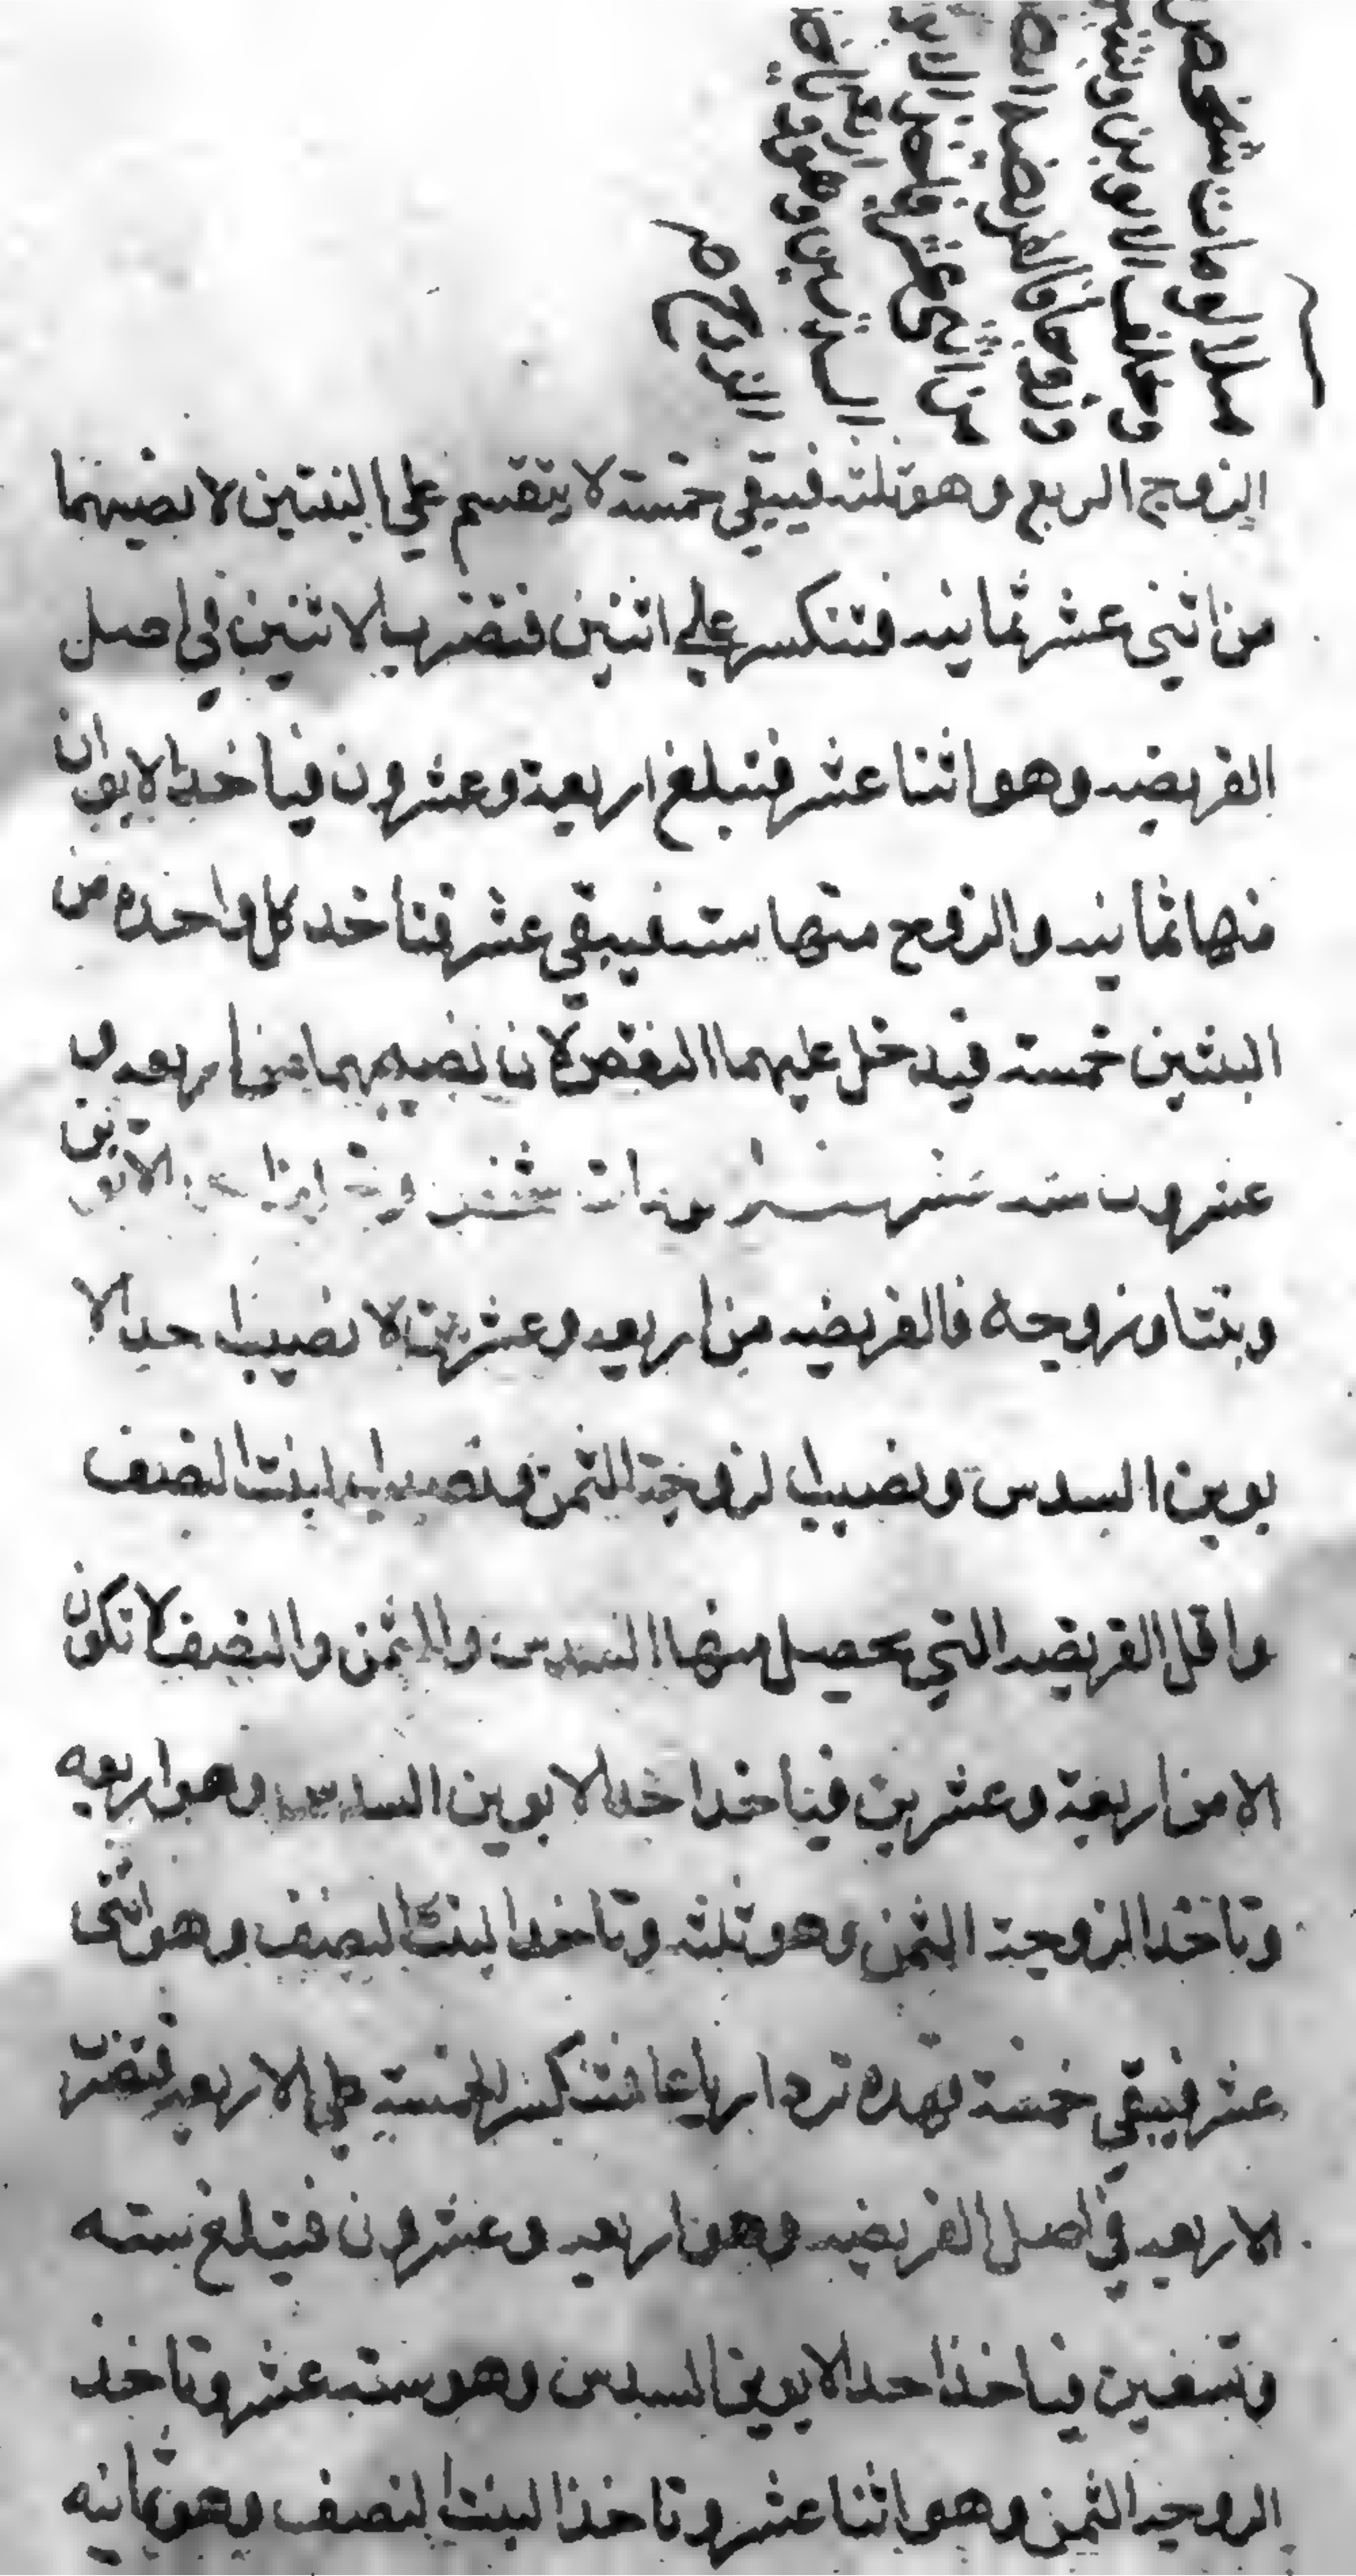 مثلا لو مات شخص
وخلف الابوين وبنتين
وزوجا فالفريضه
من اثني عشر فياخذ الابوين
السدسين وهو اربعة وياخذ
الزوج
الزوج الربع وهو ثلثه فيبقي خمسة لا يتقسم علي البنتين لا نصيبهما
من اثني عشر ثمانيه فتنكسر علي اثنين فتضرب الاثنين في اصل
الفريضه وهو اثنا عشر فتبلغ اربعة وعشرون فياخذ الابوان
منها ثمانيه والزوج منها سته فيبقي عشر فتاخد كل واحده من
البنتين خمسة فيدخل عليهما النقص لان نصيبهما من اربعه و
عشرون سته عشر مات شخص الابوين
وبنتا وزوجه فالفريضه من اربعه وعشرين لا نصيب احد الا
بوين السدس ونصيب الزوجة الثمن ونصيب البنت النصف
واقل الفريضه التي يحصل منها السدس والثمن والنصف لا تكون
الا من اربعة وعشرين فياخد احد الابوين السدس وهو اربعه
وتاخذ الزوجة الثمن وهو ثلثه وتاخذ البنت النصف وهو اثني
عشر فيبقي خمسة فهده ترد ارباعا فتنكسر الخمسة علي الاربعه فتضرب
الاربعه في اصل الفريضه وهو اربعه وعشرون فتبلغ سته
وتسعين فياخذ احد الابوين السدس وهو سته عشر وتاخذ
الزوجه الثمن وهو اثنا عشر وتاخذ البنت النصف وهو ثمانيه